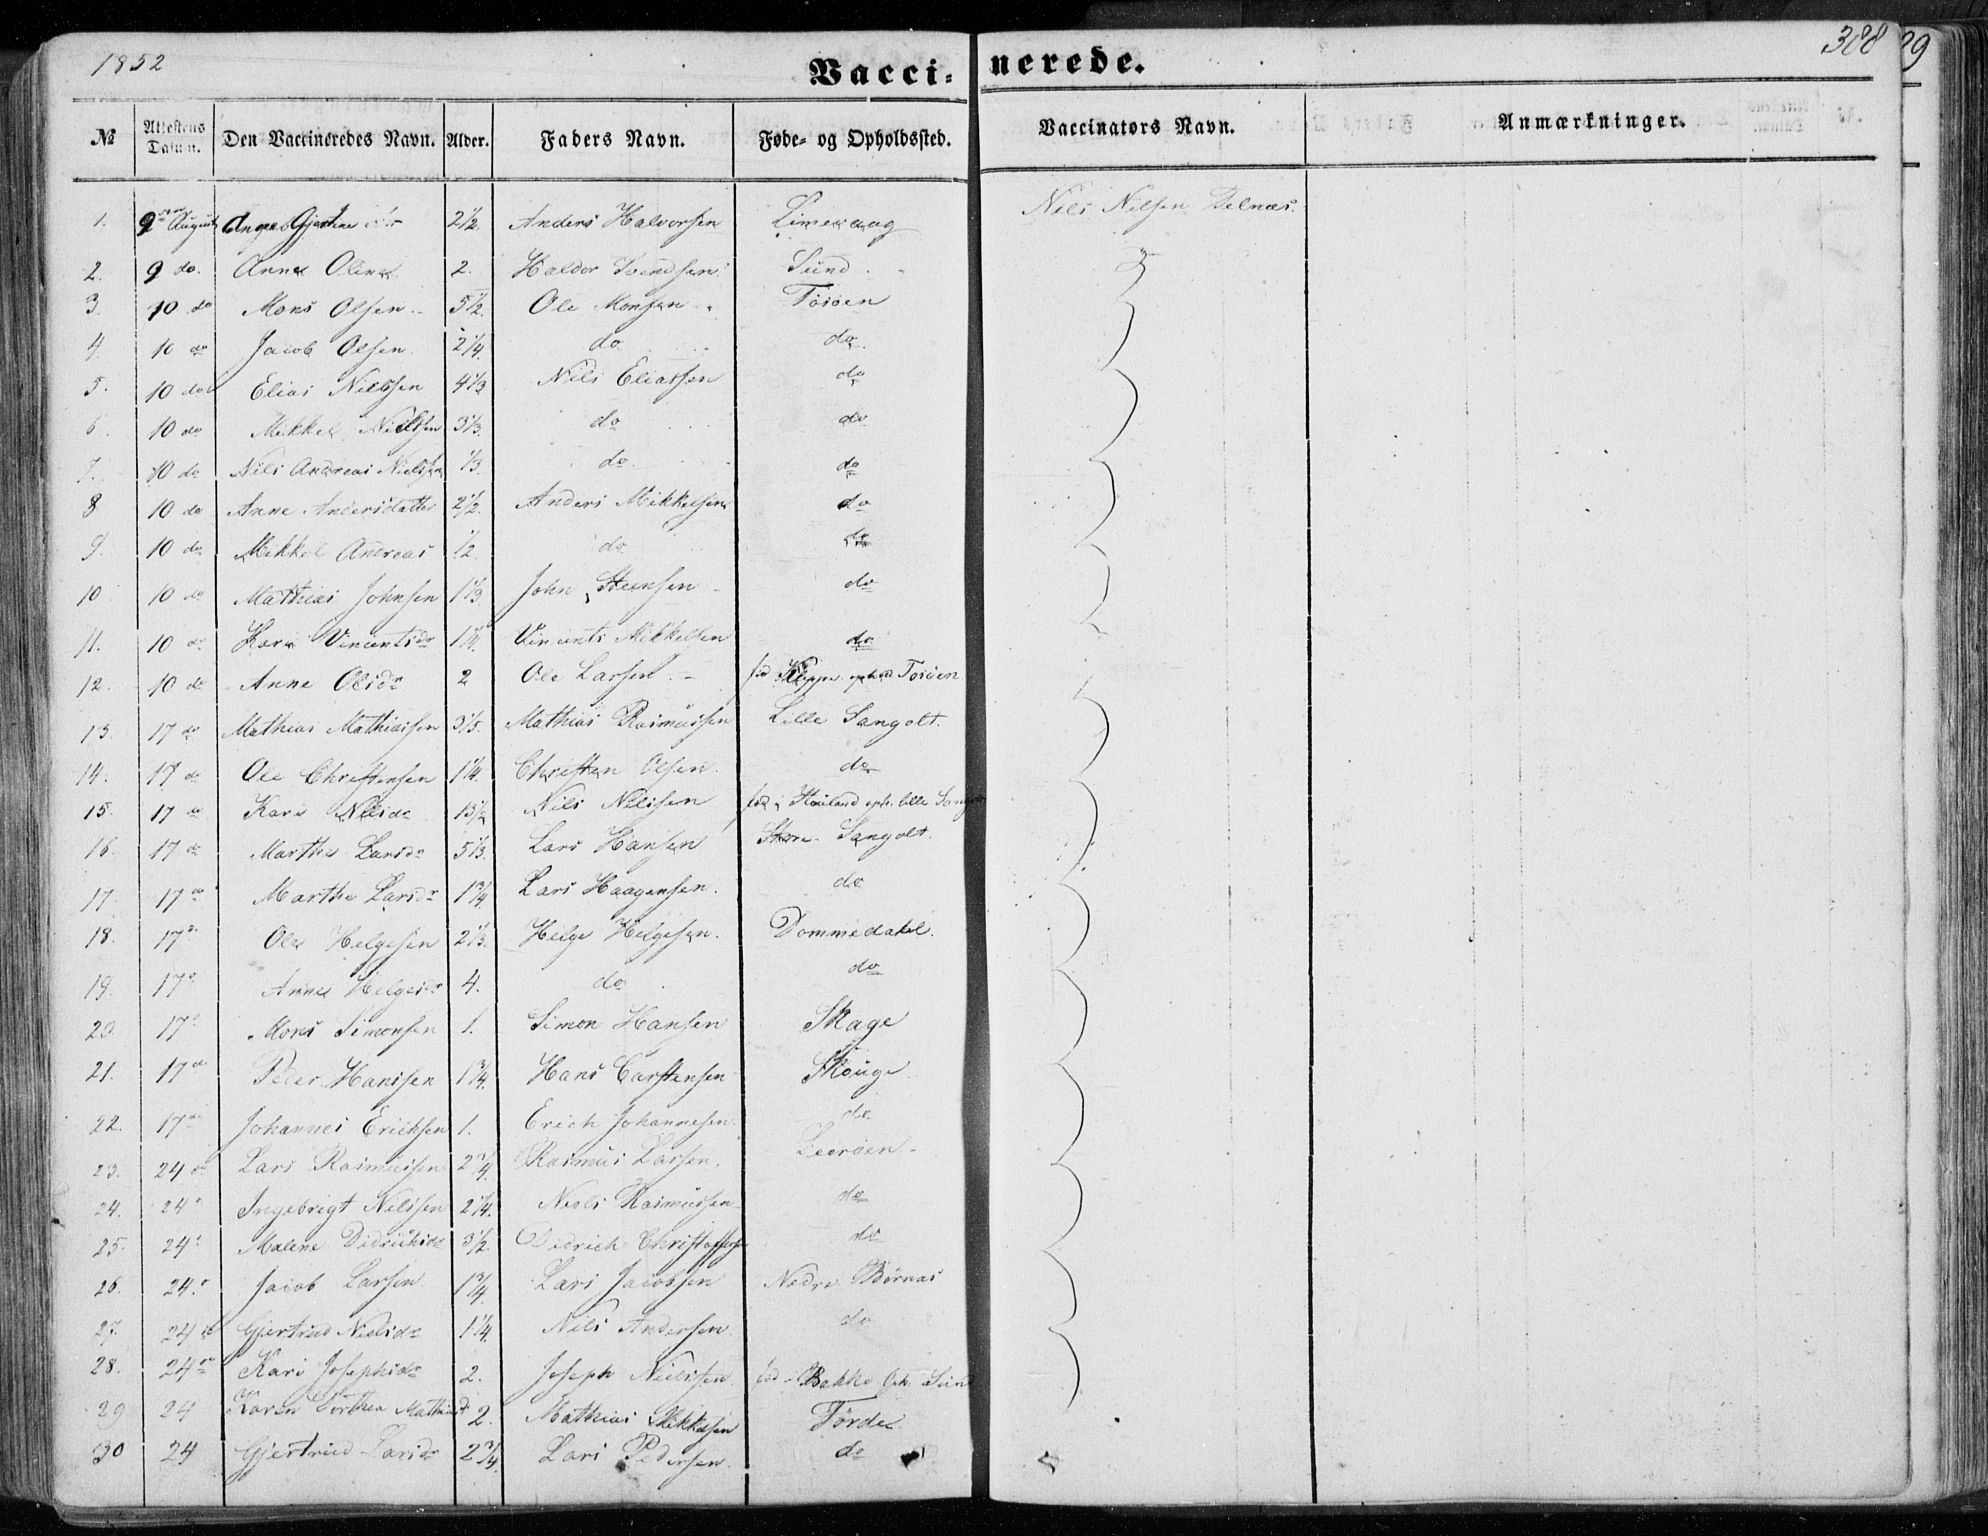 1852
388
29
Vaccinerede.
№ | Attestens Datum. | Den Vaccineredes Navn. | Alder. | Faders Navn. | Føde- og Opholdssted. | Vaccinators Navn. | Anmærkninger.
1. | 9 August | Gjertine | 2 1/2 | Anders Halvorsen | Limevaag | Niels Nilsen Telnæs.
2. | 9 do. | Anne Oline | 2. | Haldor Svendsen | Sund
3. | 10 do | Mons Olsen | 5 1/2 | Ole Monsen | Tøsøen
4. | 10 do | Jacob Olsen | 2 1/4. | do | do
5. | 10 do | Elias Nielssen | 4 1/3 | Nils Eliassen | do
6. | 10 do | Mikkel Nielssen | 3 1/3. | do | do
7. | 10 do | Nils Andreas Nielssen | 1/3. | do | do
8 | 10 do | Anne Andersdatter | 2 1/2. | Anders Mikkelsen | do
9. | 10 do | Mikkel Andreas | 1/2 | do | do
10 | 10 do | Mathias Johnsen | 1 1/3 | John Steensen | do
11. | 10 do | Kari Vincentsdr | 1 1/4. | Vincents Mikkelsen | do
12. | 10 do | Anne Olsdr | 2 | Ole Larsen | fød Kleppe opho Tøsøen
13. | 17 do | Mathias Mathiassen | 3 1/3. | Mathias Rasmussen | Lille Sangolt.
14. | 17 do | Ole Christensen | 1 1/4. | Christen Olsen. | do
15. | 17 do | Kari Nilsdr | 1 1/2 | Nils Nilssen | fød i Houland oph. lille Sangolt
16. | 17 do | Martha Larsdr | 5 1/3. | Lars Hansen | Store Sangolt.
17. | 17 do | Martha Larsdr | 1 3/4 | Lars Haagensen. | do
18. | 17 do | Ole Helgesen | 2 1/3. | Helge Helgesen. | Dommedahl.
19. | 17 do | Anne Helgesdr | 4. | do | do
20. | 17 do | Mons Simonsen | 1. | Simon Hansen | Skage
21. | 17 do | Peder Hanssen | 1 3/4. | Hans Carstensen | Skouge
22. | 17 do | Johannes Ericksen | 1. | Erich Johannesen. | do
23. | 24 do | Lars Rasmussen | 2 3/4 | Rasmus Larsen. | Leerøen
24. | 24 do | Ingebrigt Nilssen | 2 1/4. | Niels Rasmussen | do
25. | 24 do | Malene Didrichsdr | 3 1/2. | Didrich Christoffersen | do
26. | 24 do | Jacob Larsen | 1 3/4. | Lars Jacobsen | Nedre Børnæs
27. | 24 do | Gjertrud Nielsdr | 1 1/4. | Nils Andersen. | do
28. | 24 do | Kari Josephsdr | 2. | Joseph Nielssen | fød i Bakke Oph. Sund
29 | 24 | Karen Dorthea Mathiasd | 2. | Mathias Mikkelsen | Tørde
30 | 24 | Gjertrud Larsdr | 2 3/4. | Lars Pedersen. | do